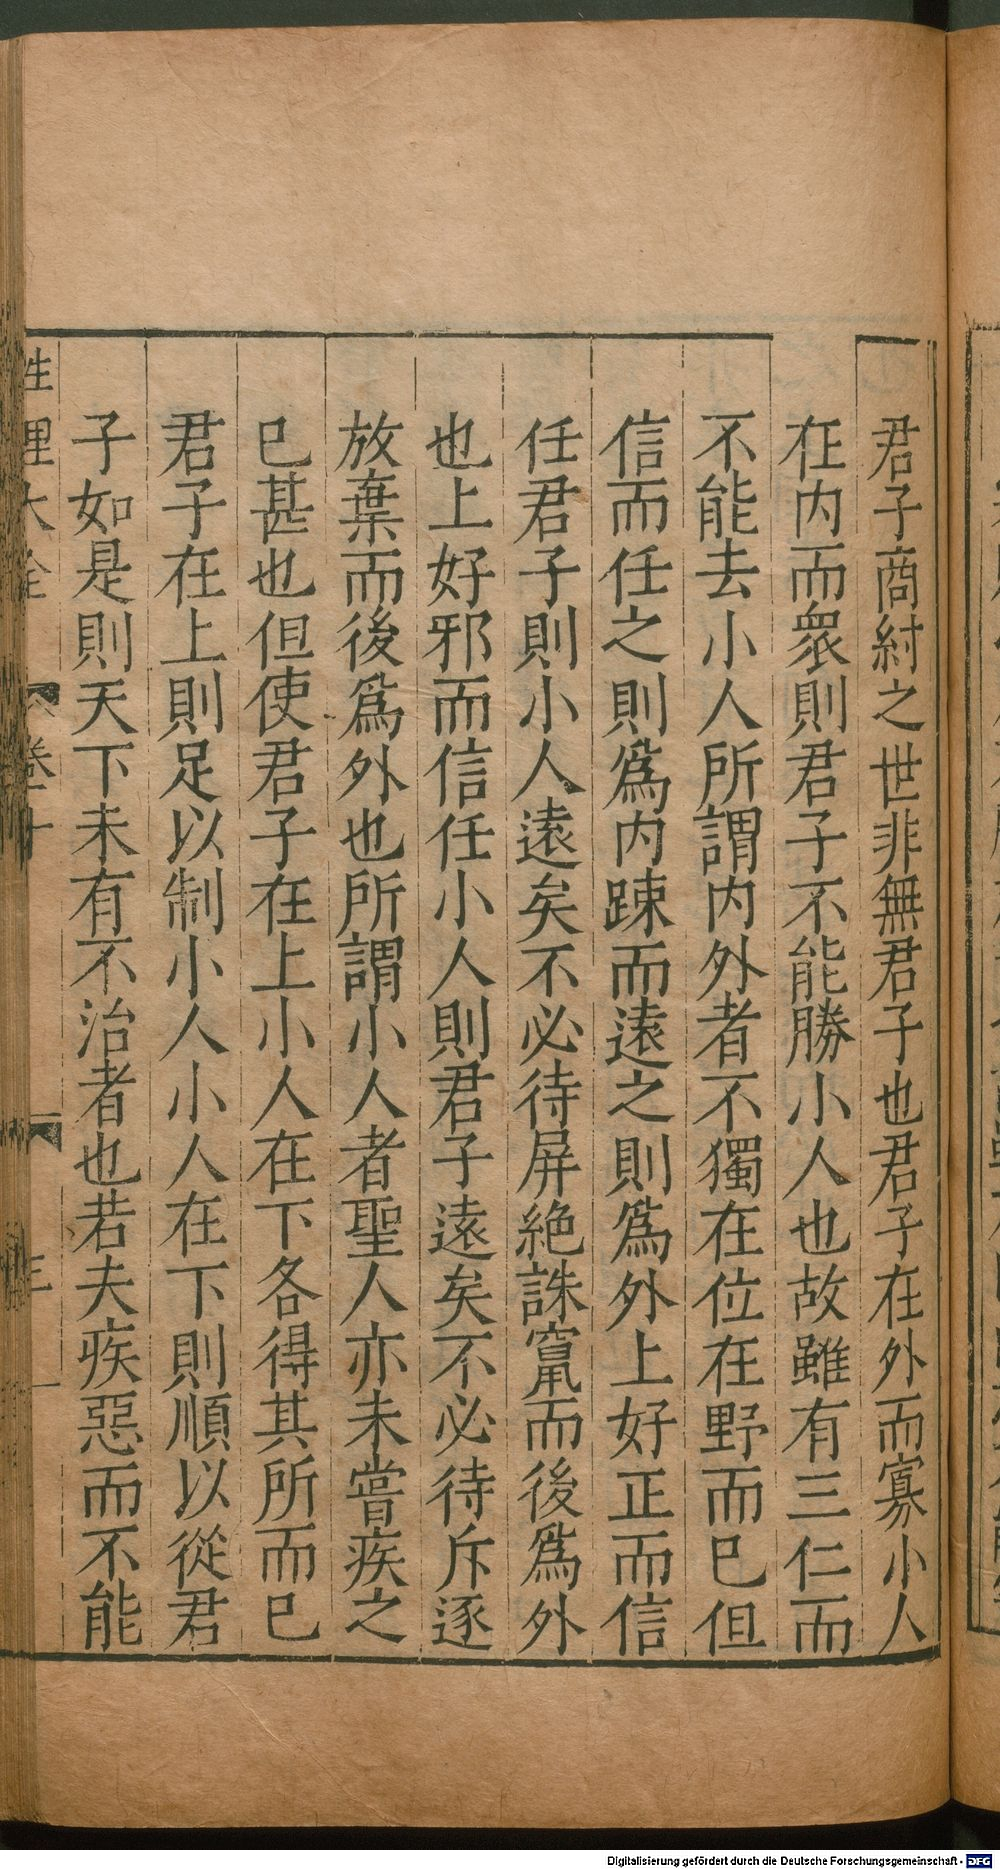 君子商紂之世非無君子也君子在外而寡小人
在内而衆則君子不能勝小人也故雖有三仁而
不能去小人所謂内外者不獨在位在野而已但
信而任之則爲内踈而遠之則爲外上好正而信
任君子則小人遠矣不必待屏絶誅竄而後爲外
也上好邪而信任小人則君子遠矣不必待斥逐
放棄而後爲外也所謂小人者聖人亦未嘗疾之
已甚也但使君子在上小人在下各得其所而已
君子在上則足以制小人小人在下則順以從君
子如是則天下未有不治者也若夫疾惡而不能
性理大全
卷十
Digitalisierung gefördert durch die Deutsche Forschungsgemeinschaft - DFG